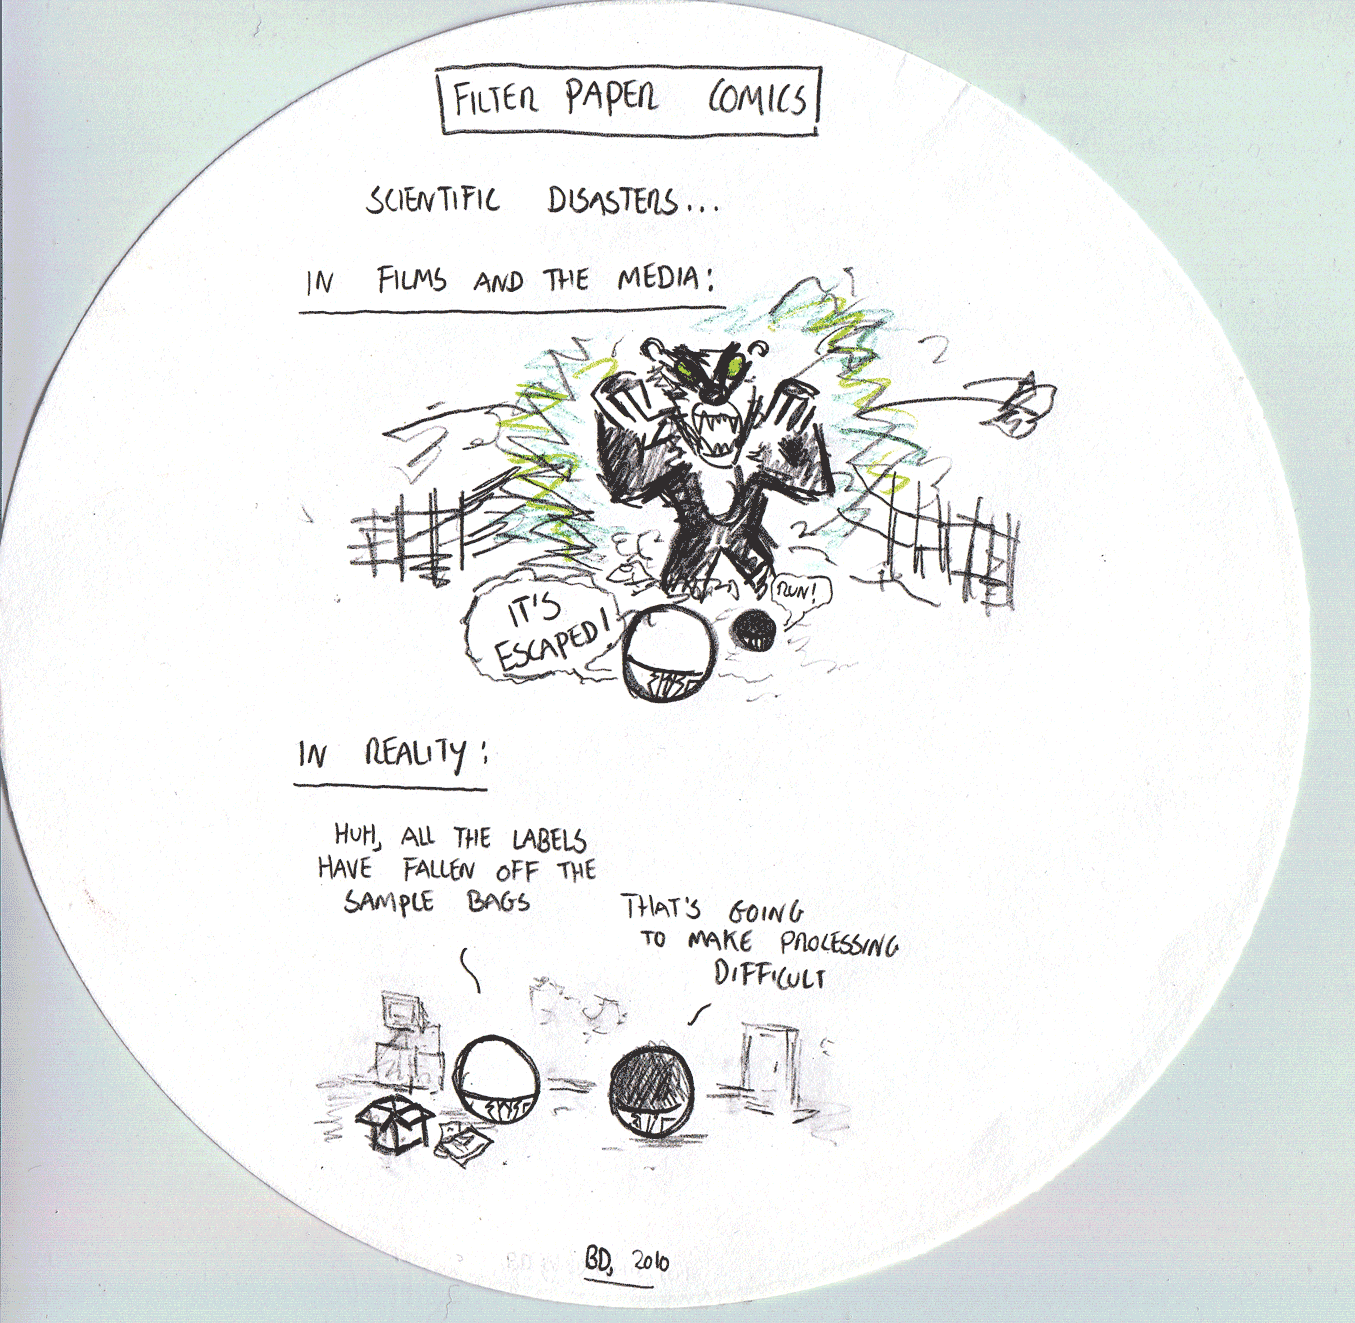 FILTER PAPER COMICS
SCIENTIFIC DISASTERS...
IN FILMS AND THE MEDIA:
IT'S
ESCAPED!
RUN!
IN REALITY:
HUH, ALL THE LABELS
HAVE FALLEN OFF THE
SAMPLE BAGS
THAT'S GOING
TO MAKE PROCESSING
DIFFICULT
BD, 2010